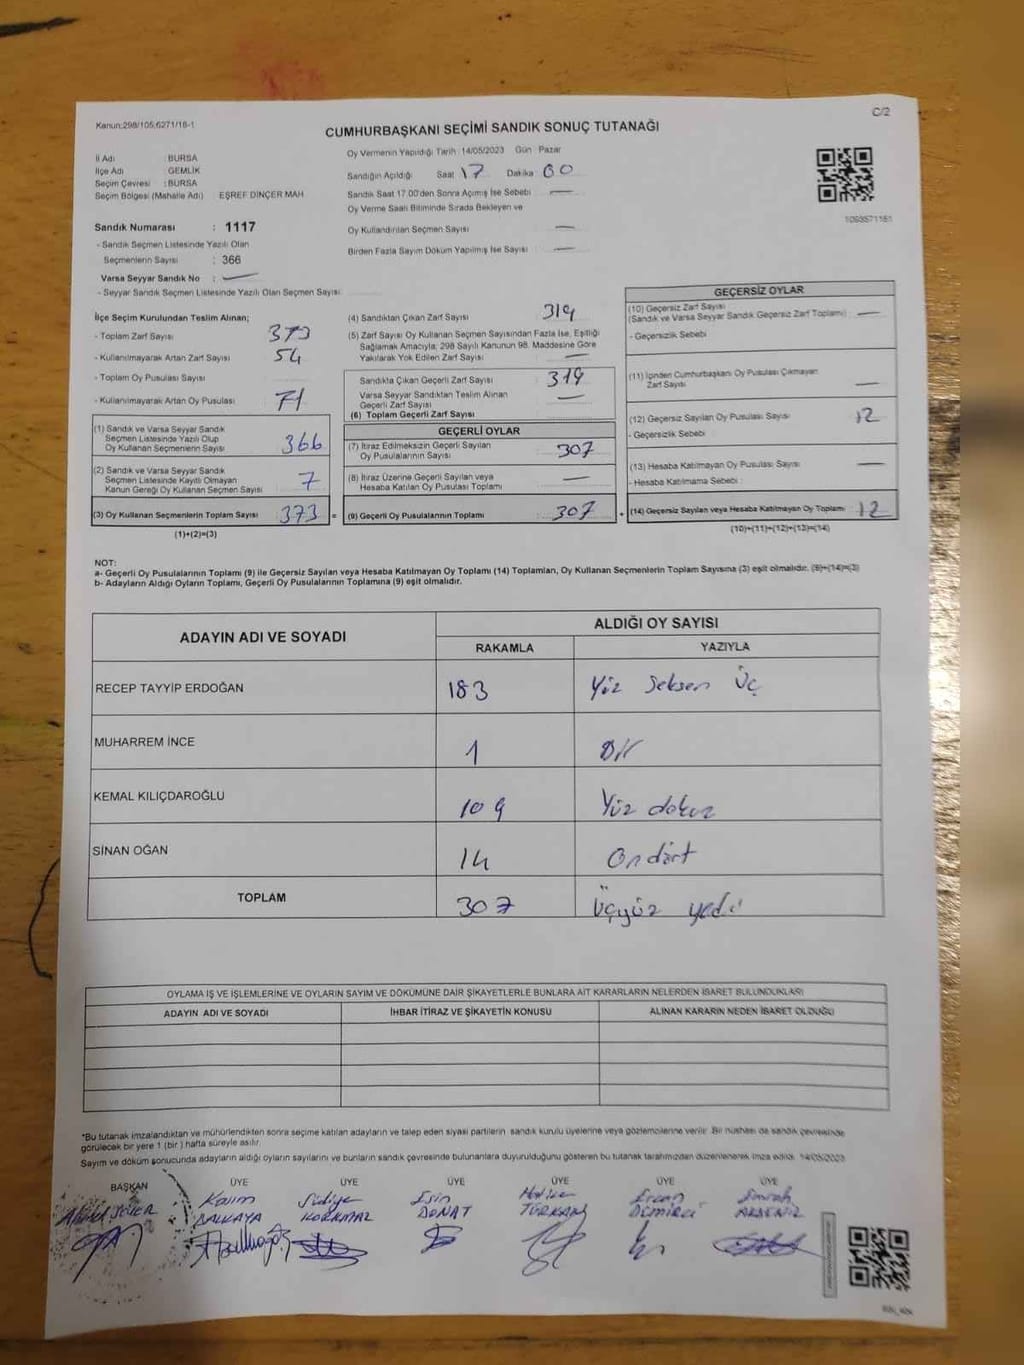 C/2
Kanun:298/105,6271/18-1
CUMHURBAŞKANI SEÇİMİ SANDIK SONUÇ TUTANAĞI
İl Adı : BURSA
İlçe Adı : GEMLİK
Seçim Çevresi : BURSA
Seçim Bölgesi (Mahalle Adı) EŞREF DİNÇER MAH
Oy Vermenin Yapıldığı Tarih 14/05/2023 Gün Pazar
Sandığın Açıldığı Saat 17 Dakika 00
Sandık Saat 17.00'den Sonra Açımış İse Sebebi —
Oy Verme Saati Bitiminde Sırada Bekleyen ve
Oy Kullandırılan Seçmen Sayısı —
Birden Fazla Sayım Döküm Yapılmış İse Sayısı —
1093571161
Sandık Numarası : 1117
- Sandık Seçmen Listesinde Yazılı Olan
Seçmenlerin Sayısı : 366
Varsa Seyyar Sandık No : —
- Seyyar Sandık Seçmen Listesinde Yazılı Olan Seçmen Sayısı
İlçe Seçim Kurulundan Teslim Alınan;
- Toplam Zarf Sayısı 373
- Kullanılmayarak Artan Zarf Sayısı 54
- Toplam Oy Pusulası Sayısı
- Kullanılmayarak Artan Oy Pusulası 71
(1) Sandık ve Varsa Seyyar Sandık
Seçmen Listesinde Yazılı Olup
Oy Kullanan Seçmenlerin Sayısı 366
(2) Sandık ve Varsa Seyyar Sandık
Seçmen Listesinde Kayıtlı Olmayan
Kanun Gereği Oy Kullanan Seçmen Sayısı 7
(3) Oy Kullanan Seçmenlerin Toplam Sayısı 373 =
(1)+(2)=(3)
(4) Sandıktan Çıkan Zarf Sayısı 319
(5) Zarf Sayısı Oy Kullanan Seçmen Sayısından Fazla İse, Eşitliği
Sağlamak Amacıyla; 298 Sayılı Kanunun 98. Maddesine Göre
Yakılarak Yok Edilen Zarf Sayısı —
Sandıkta Çıkan Geçerli Zarf Sayısı 319
Varsa Seyyar Sandıktan Teslim Alınan
Geçerli Zarf Sayısı —
(6) Toplam Geçerli Zarf Sayısı
GEÇERLİ OYLAR
(7) İtiraz Edilmeksizin Geçerli Sayılan
Oy Pusulalarının Sayısı 307
(8) İtiraz Üzerine Geçerli Sayılan veya
Hesaba Katılan Oy Pusulası Toplamı —
(9) Geçerli Oy Pusulalarının Toplamı 307 +
GEÇERSİZ OYLAR
(10) Geçersiz Zarf Sayısı
(Sandık ve Varsa Seyyar Sandık Geçersiz Zarf Toplamı) —
- Geçersizlik Sebebi
(11) İçinden Cumhurbaşkanı Oy Pusulası Çıkmayan
Zarf Sayısı —
(12) Geçersiz Sayılan Oy Pusulası Sayısı 12
- Geçersizlik Sebebi
(13) Hesaba Katılmayan Oy Pusulası Sayısı —
- Hesaba Katılmama Sebebi :
(14) Geçersiz Sayılan veya Hesaba Katılmayan Oy Toplamı 12
(10)+(11)+(12)+(13)=(14)
NOT:
a- Geçerli Oy Pusulalarının Toplamı (9) ile Geçersiz Sayılan veya Hesaba Katılmayan Oy Toplamı (14) Toplamları, Oy Kullanan Seçmenlerin Toplam Sayısına (3) eşit olmalıdır. (9)+(14)=(3)
b- Adayların Aldığı Oyların Toplamı, Geçerli Oy Pusulalarının Toplamına (9) eşit olmalıdır.
ADAYIN ADI VE SOYADI
ALDIĞI OY SAYISI
RAKAMLA YAZIYLA
RECEP TAYYİP ERDOĞAN 183 Yüz Seksen Üç
MUHARREM İNCE 1 Bir
KEMAL KILIÇDAROĞLU 109 Yüz dokuz
SİNAN OĞAN 14 Ondört
TOPLAM 307 Üçyüz yedi
OYLAMA İŞ VE İŞLEMLERİNE VE OYLARIN SAYIM VE DÖKÜMÜNE DAİR ŞİKAYETLERLE BUNLARA AİT KARARLARIN NELERDEN İBARET BULUNDUKLARI
ADAYIN ADI VE SOYADI İHBAR İTİRAZ VE ŞİKAYETİN KONUSU ALINAN KARARIN NEDEN İBARET OLDUĞU
*Bu tutanak imzalandıktan ve mühürlendikten sonra seçime katılan adayların ve talep eden siyasi partilerin sandık kurulu üyelerine veya gözlemcilerine verilir. Bir nüshası da sandık çevresinde
görülecek bir yere 1 (bir ) hafta süreyle asılır.
Sayım ve döküm sonucunda adayların aldığı oyların sayılarını ve bunların sandık çevresinde bulunanlara duyurulduğunu gösteren bu tutanak tarafımızdan düzenlenerek imza edildi. 14/05/2023
BAŞKAN ÜYE ÜYE ÜYE ÜYE ÜYE ÜYE
Kaım Sıdıye Esin Hatice Ercan Emrah
DALKAYA KORKMAZ DONAT TÜRKAN DEMİRCİ AKDENİZ